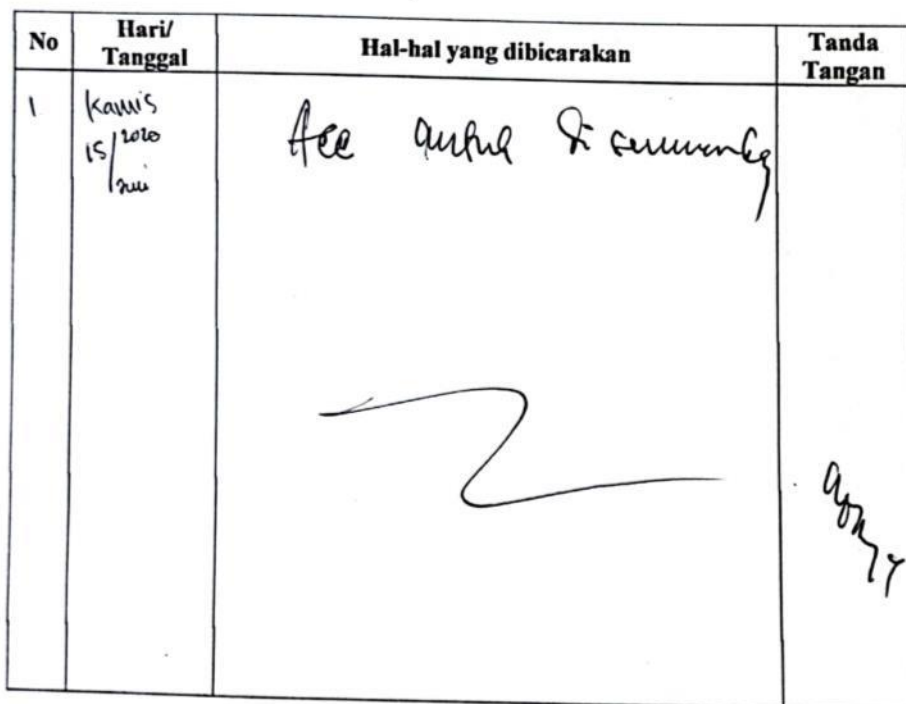 No Hari/ Tanggal Hal-hal yang dibicarakan Tanda Tangan
1 Kamis
15/2020
Juni
Acc untuk di seminarkan